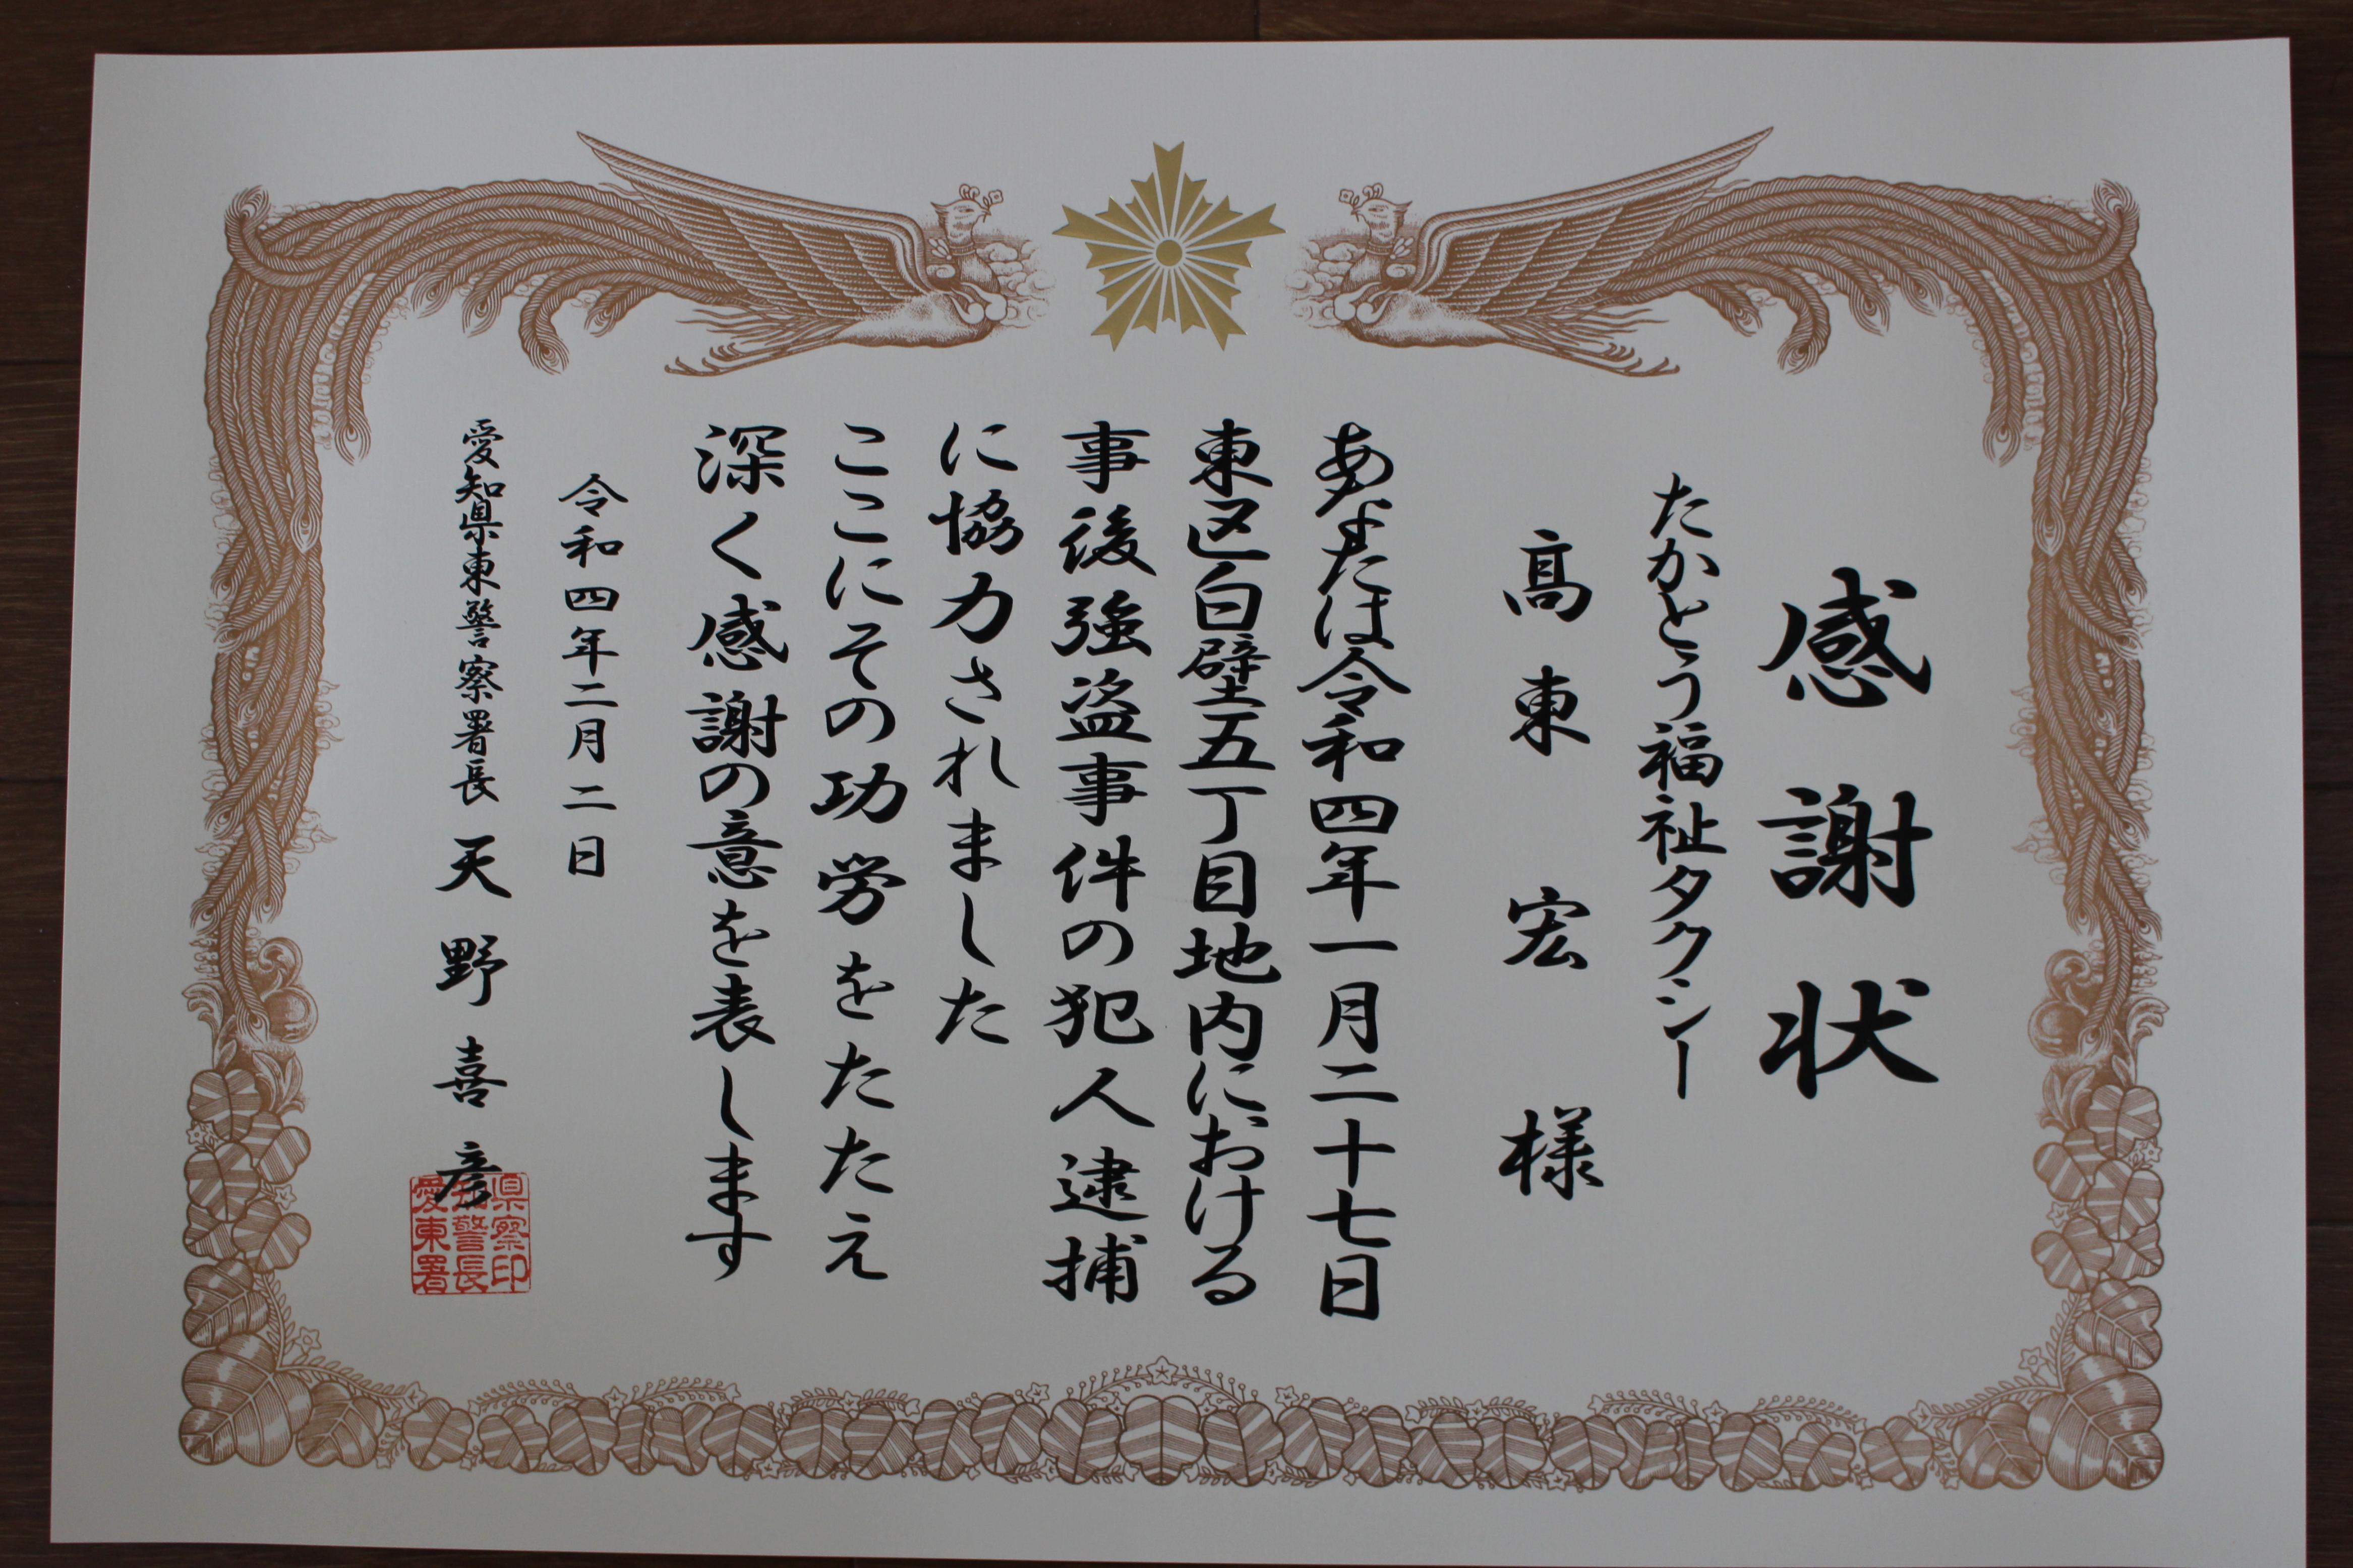 感謝状
たかとう福祉タクシー
髙東宏様
あなたは令和四年一月二十七日
東区白壁五丁目地内における
事後強盗事件の犯人逮捕
に協力されました
ここにその功労をたたえ
深く感謝の意を表します
令和四年二月二日
愛知県東警察署長 天野喜彦
県察印
知警長
愛東署